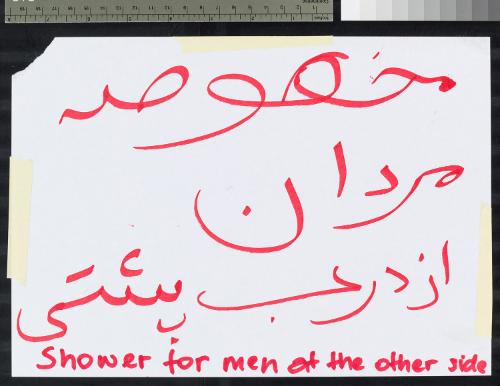 مخصوصه
مردان
از در پشتی
Shower for men at the other side